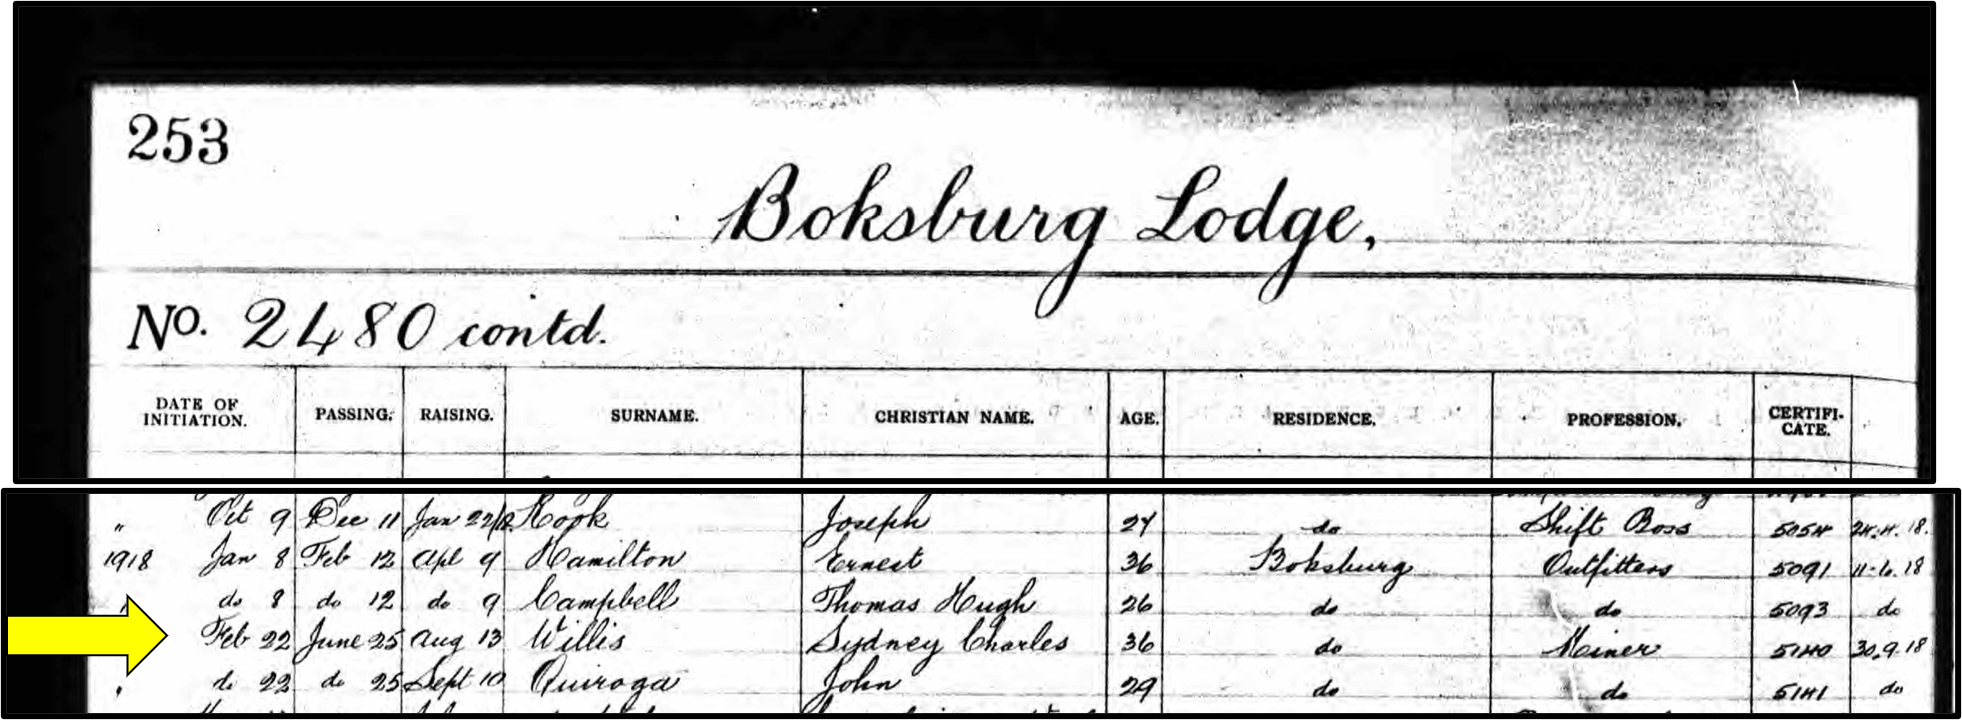 253
Boksburg Lodge,
No. 2480 contd.
DATE OF INITIATION. PASSING. RAISING. SURNAME. CHRISTIAN NAME. AGE. RESIDENCE. PROFESSION. CERTIFI-CATE.
" Oct 9 Dec 11 Jan 22/18 Hook Joseph 27 do Shift Boss 5054 24.4.18.
1918 Jan 8 Feb 12 Apl 9 Hamilton Ernest 36 Boksburg Outfitters 5091 11-6.18
do 8 do 12 do 9 Campbell Thomas Hugh 26 do do 5093 do
Feb 22 June 25 Aug 13 Willis Sydney Charles 36 do Miner 5140 30.9.18
do 22 do 25 Sept 10 Quiroga John 29 do do 5141 do